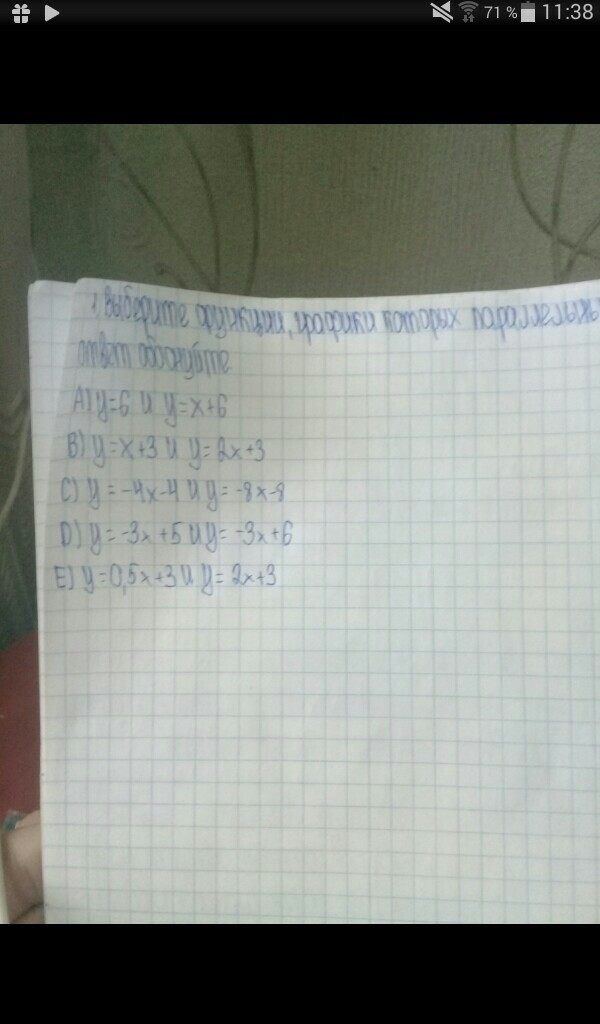 71 % 11:38
1 Выберите функции, графики которых параллельны
ответ обоснуйте
A) y=6 и y=x+6
B) y=x+3 и y=2x+3
C) y=-4x-4 и y=-8x-8
D) y=-3x+5 и y=-3x+6
E) y=0,5x+3 и y=2x+3